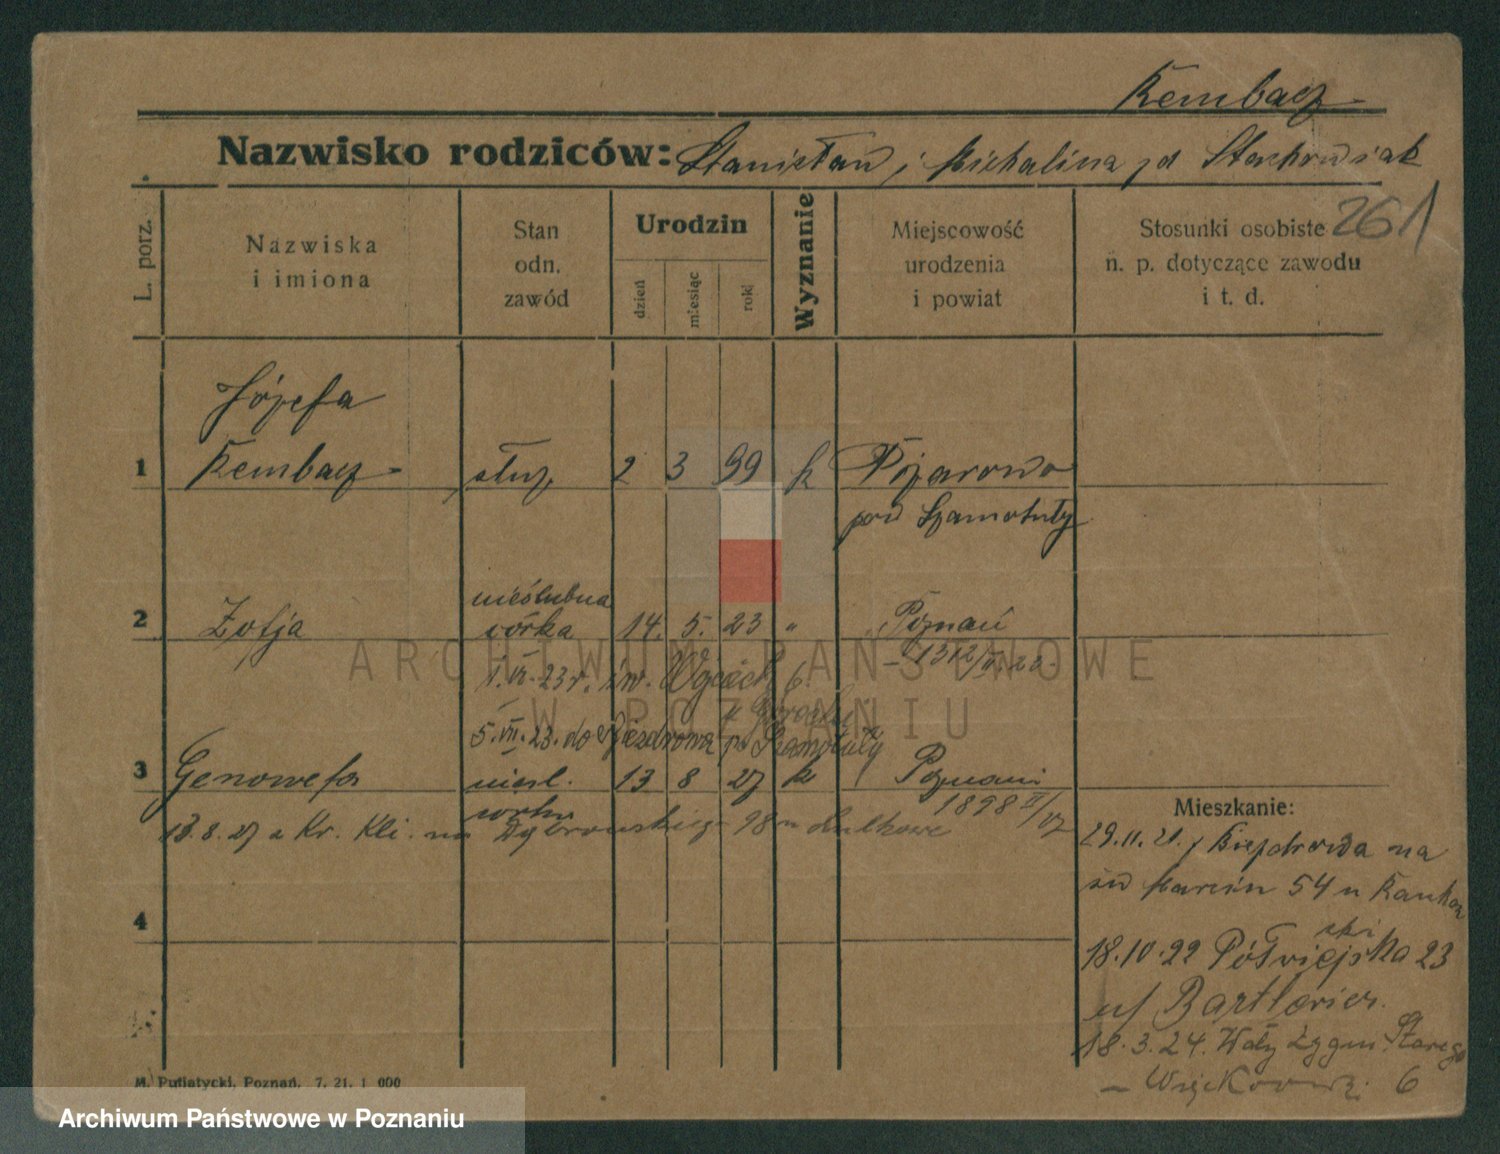 Kembacz
Nazwisko rodziców: Stanisław i Michalina zd Stachowiak
L. porz.
Nazwiska
i imiona
Stan
odn.
zawód
Urodzin
dzień
miesiąc
rok
Wyznanie
Miejscowość
urodzenia
i powiat
Stosunki osobiste
n. p. dotyczące zawodu
i t. d.
261
Józefa
1 Kembacz służ. 2 3 99 k Pożarowo
pow Szamotuły
nieślubna
2 Zofja córka 14. 5. 23 " Poznań
1312/V. 23
1. VI. 23 r. św. Wojciech 6.
5. VII. 23. do p. Szamotuły
3 Genowefa nieśl. 13 8 27 k Poznań
córka 1898 II/27
13.8.27 z Kr. Kli. na Dąbrowskiego 98
4
Mieszkanie:
29.11.21. z na
św Marcin 54 u
18.10.22 Półwiejska 23
u/
18.3.24. Wały Zygm. Starego
6
M. Putiatycki, Poznań. 7. 21. 1 000
ARCHIWUM PAŃSTWOWE
W POZNANIU
Archiwum Państwowe w Poznaniu